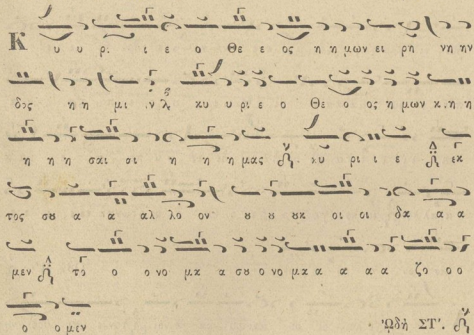 Κ υ υ ρι ι ε ο Θε ε ος η η μων ει ρη νη ην
δος η η μι ιν κυ υ ριε ο Θε ο ος η μων κ η η
η η η σαι σι η η η μας κυ ρι ι ε εκ
τος σου α α αλ λο ον ου ου ουκ οι οι δα α α
μεν το ο ο νο μα α σου ο νο μα α α α α ζο ο ο
ο ο μεν Ὠδὴ ΣΤ´.